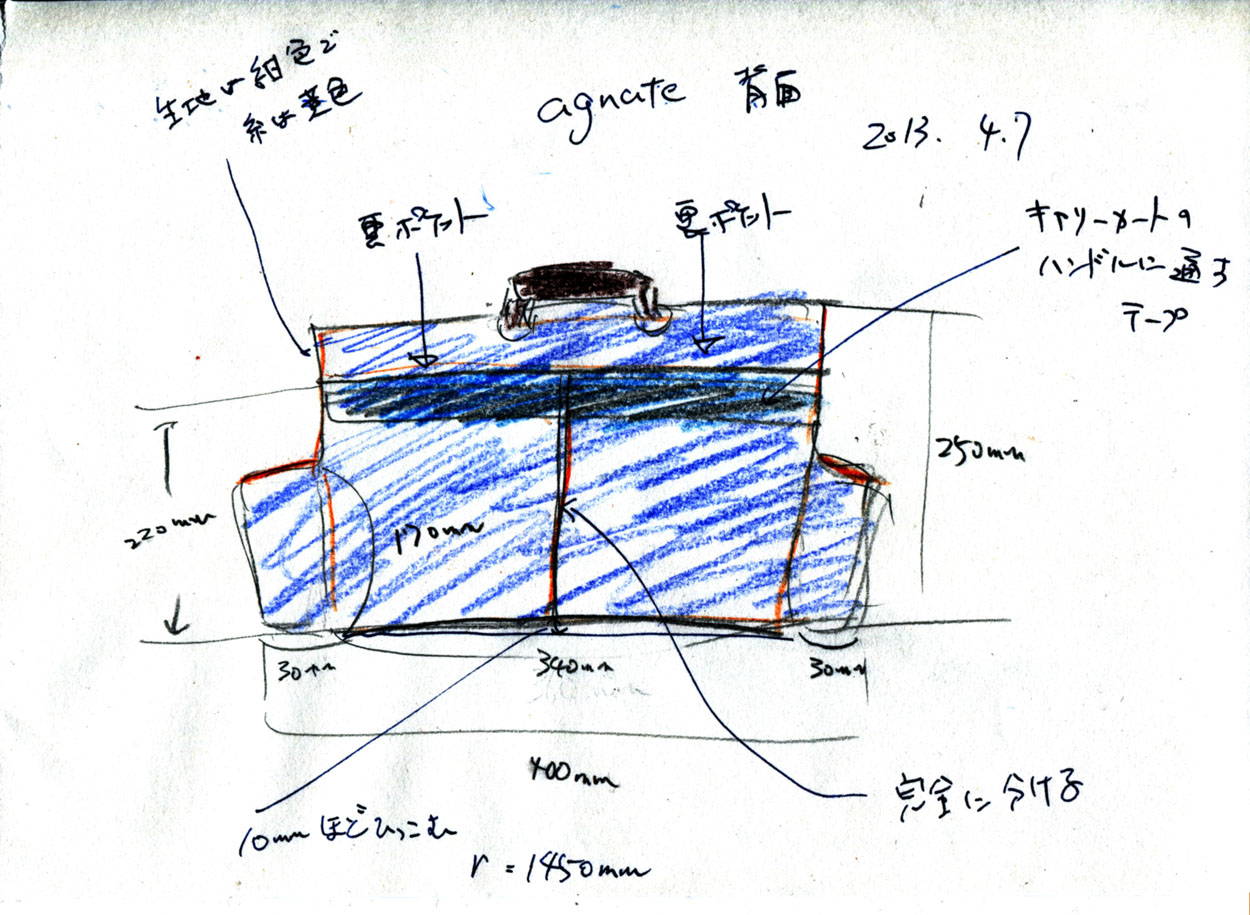 生地は紺色で
糸は茶色
agnate 背面
2013. 4.7
裏ポケット
裏ポケット
キャリーカートの
ハンドルに通す
テープ
250mm
220mm
170mm
30mm
340mm
30mm
400mm
10mmほどひっこむ
完全に分ける
r=1450mm